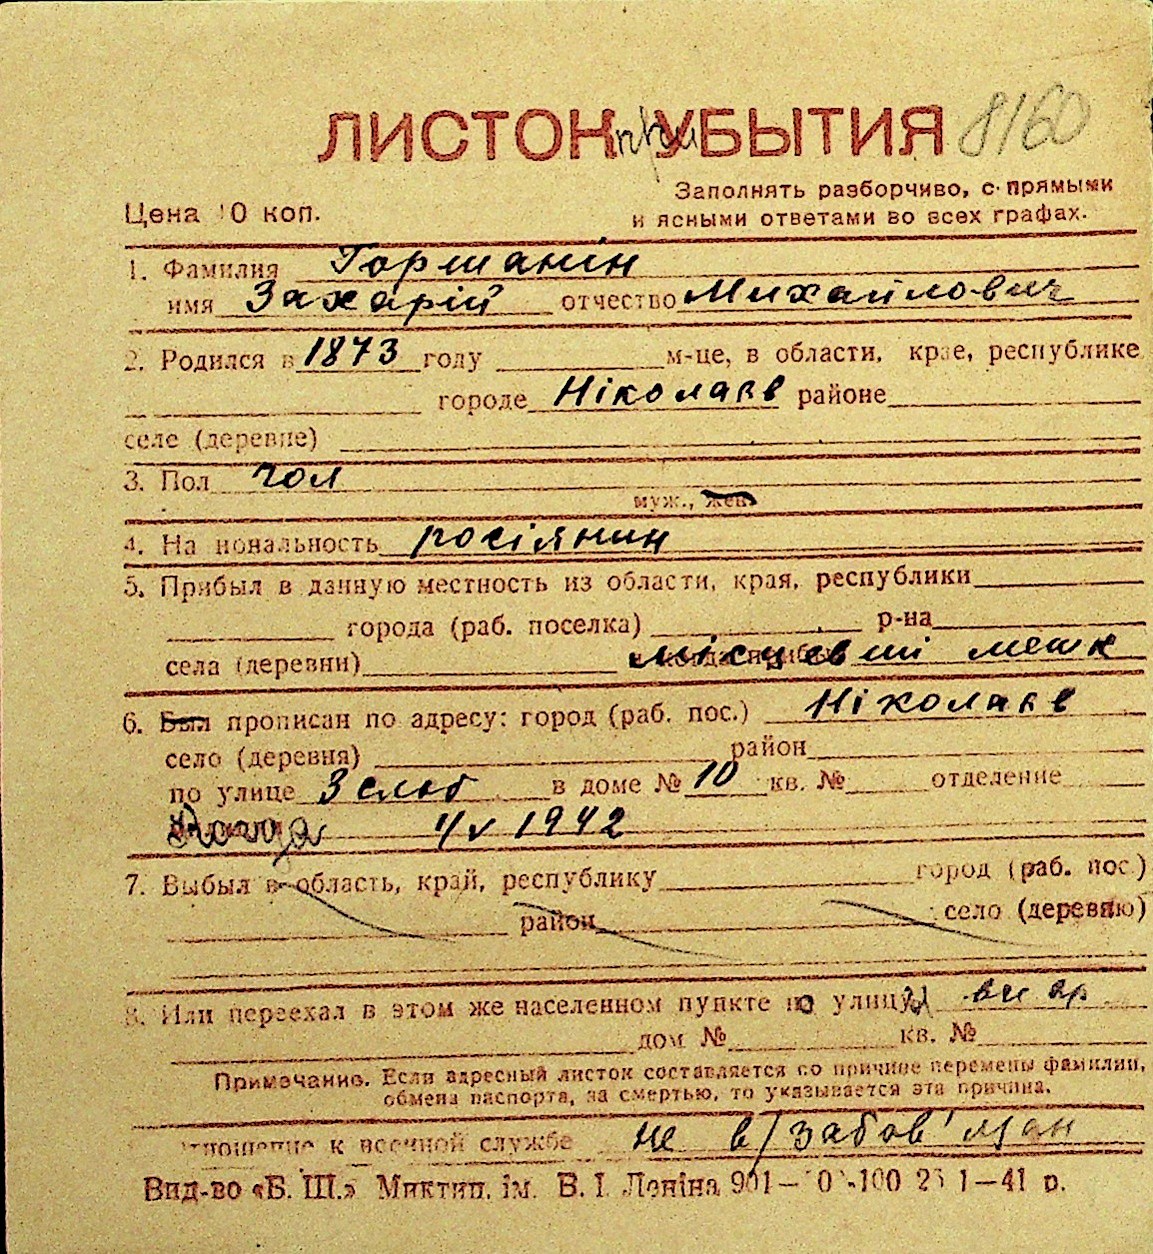 ЛИСТОК при УБЫТИЯ 8160
Заполнять разборчиво, с прямыми
Цена 10 коп. и ясными ответами во всех графах.
1. Фамилия Горшанін
имя Захарій отчество Михайлович
2. Родился в 1873 году м-це, в области, крае, республике
городе Ніколаєв районе
селе (деревне)
3. Пол чол
муж., жен
4. На иональность росіянин
5. Прибыл в данную местность из области, края, республики
города (раб. поселка) р-на
села (деревни) місцевий мешк
6. Был прописан по адресу: город (раб. пос.) Ніколаєв
село (деревня) район
по улице 3 слоб в доме № 10 кв. № отделение
Когда 1/V 1942
7. Выбыл в область, край, республику город (раб. пос.)
район село (деревню)
8. Или переехал в этом же населенном пункте по улицу
дом № кв. №
Примечание. Если адресный листок составляется по причине перемены фамилии,
обмена паспорта, за смертью, то указывается эта причина.
отношение к военной службе не в/забов'язан
Вид-во «Б. Ш.» Миктип. ім. В. І. Леніна 901— -100 1—41 р.